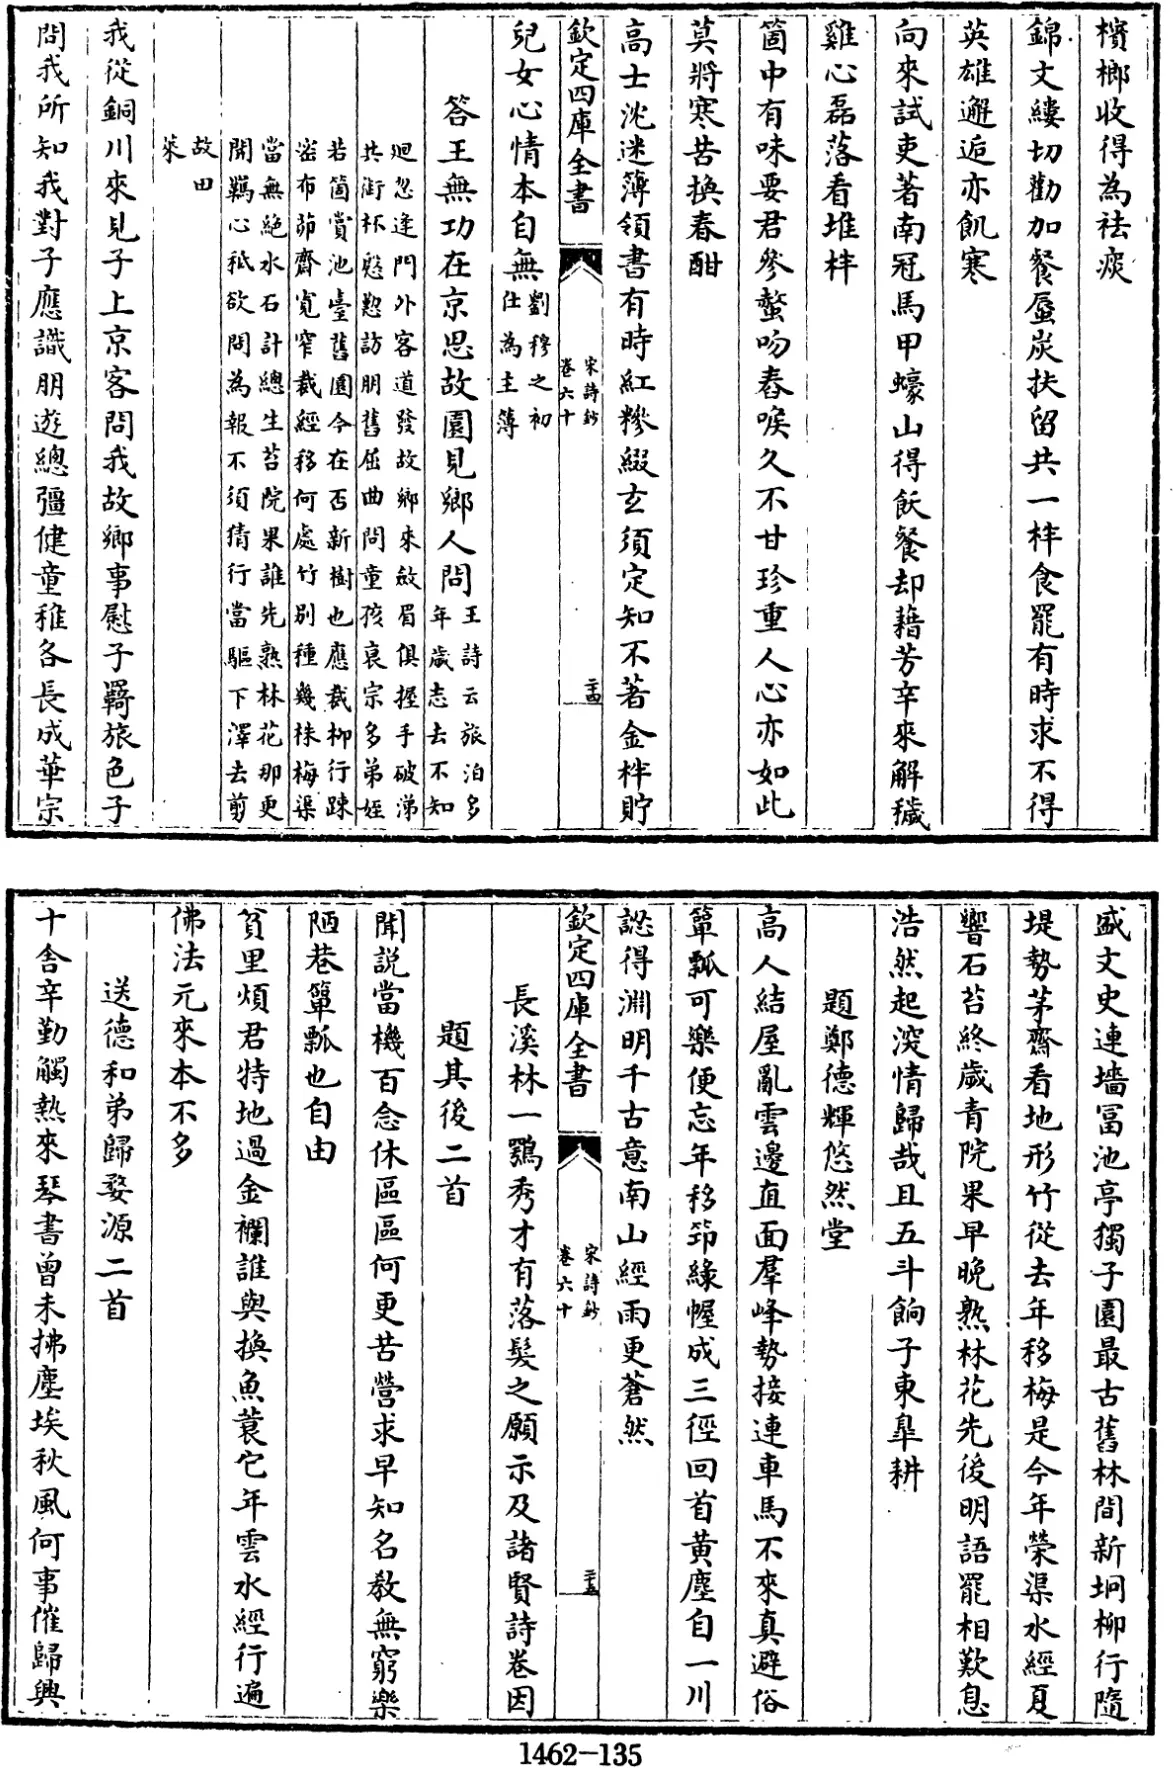 檳榔收得為祛痰
錦文縷切勸加餐蜃炭扶留共一柈食罷有時求不得
英雄邂逅亦飢寒
向來試吏著南冠馬甲蠔山得飫餐却藉芳辛來解穢
雞心磊落看堆柈
箇中有味要君參螫吻舂喉久不甘珍重人心亦如此
莫將寒苦換春酣
高士沈迷簿領書有時紅糝綴玄須定知不著金柈貯
欽定四庫全書
宋詩鈔
卷六十
二十四
兒女心情本自無劉穆之初
仕為主簿
答王無功在京思故園見鄉人問王詩云旅泊多
年歲志去不知
迴忽逢門外客道發故鄉來斂眉俱握手破涕
共銜杯慇懃訪朋舊屈曲問童孩衰宗多弟姪
若箇賞池臺舊園今在否新樹也應栽柳行踈
密布茆齋寬窄裁經移何處竹別種幾株梅渠
當無絕水石計總生苔院果誰先熟林花那更
開羈心秪欲問為報不須猜行當驅下澤去剪
故田
萊
我從銅川來見子上京客問我故鄉事慰子羇旅色子
問我所知我對子應識朋遊總彊健童稚各長成華宗
盛文史連墻富池亭獨子園最古舊林間新坰柳行隨
堤勢茅齋看地形竹從去年移梅是今年榮渠水經夏
響石苔終歲青院果早晚熟林花先後明語罷相歎息
浩然起深情歸哉且五斗餉子東臯耕
題鄭德輝悠然堂
高人結屋亂雲邊直面羣峰勢接連車馬不來真避俗
簞瓢可樂便忘年移筇緣幄成三徑回首黃塵自一川
認得淵明千古意南山經雨更蒼然
欽定四庫全書
宋詩鈔
卷六十
二十五
長溪林一鶚秀才有落髮之願示及諸賢詩卷因
題其後二首
聞說當機百念休區區何更苦營求早知名教無窮樂
陋巷簞瓢也自由
貧里煩君特地過金襴誰與換魚蓑它年雲水經行遍
佛法元來本不多
送德和弟歸婺源二首
十舍辛勤觸熱來琴書曾未拂塵埃秋風何事催歸興
1462-135